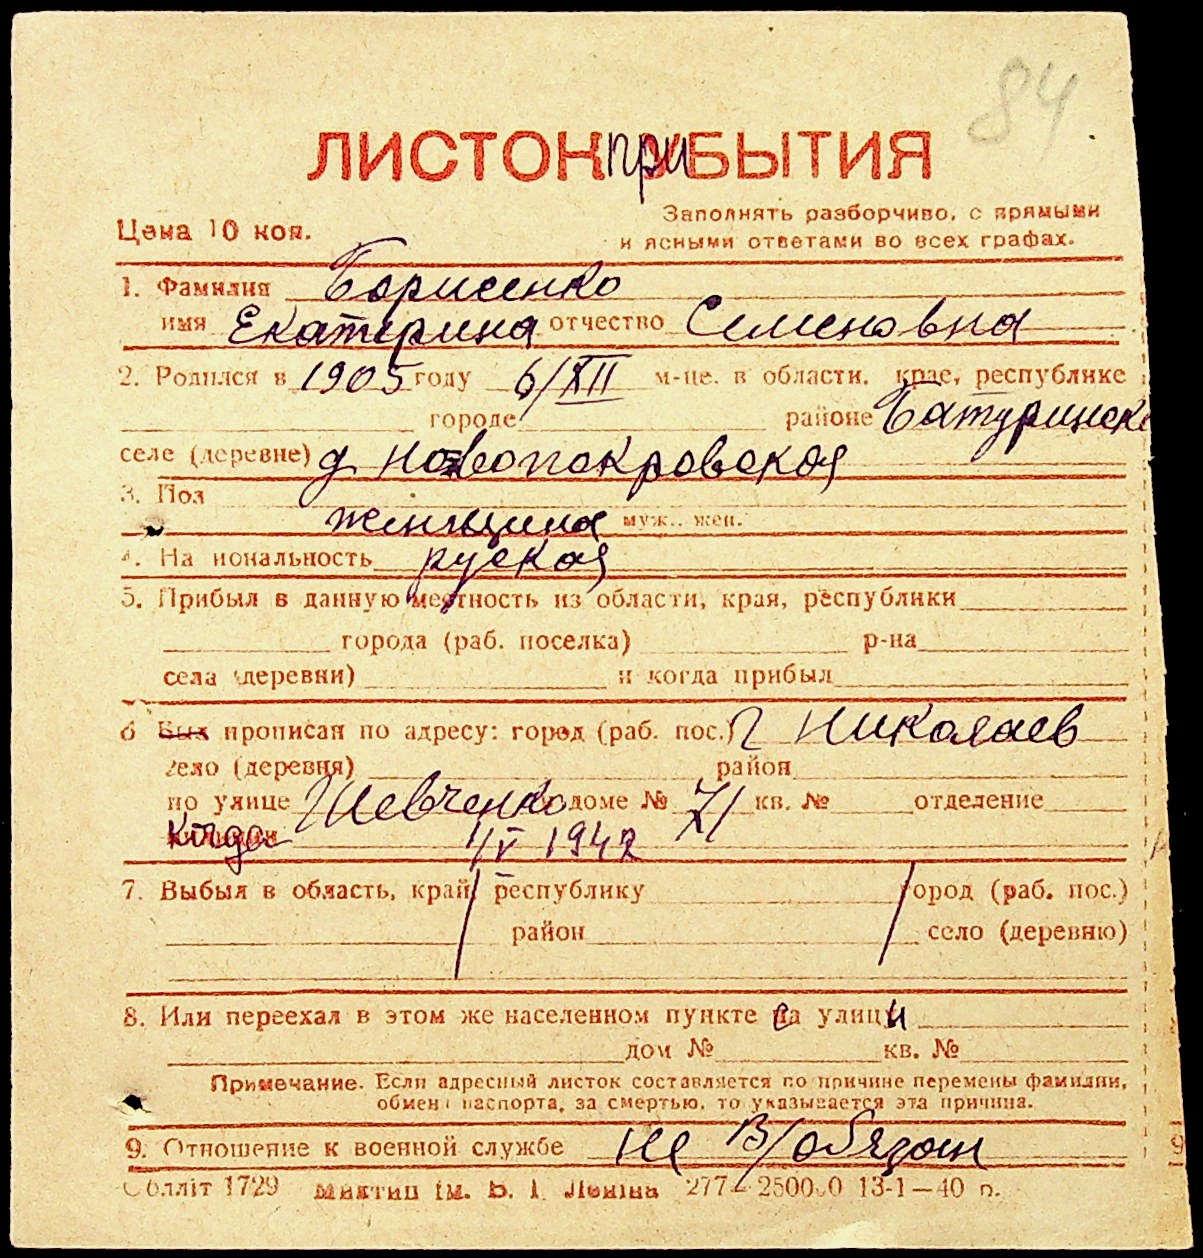 84
ЛИСТОК при БЫТИЯ
Цена 10 коп.
Заполнять разборчиво, с прямыми
и ясными ответами во всех графах.
1. Фамилия Борисенко
имя Екатерина отчество Семеновна
2. Родился в 1905 году 6/XII м-це. в области, крае, республике
городе районе Батуринск
селе (деревне) д Новопокровская
3. Пол
женщина муж.. жен.
4. На иональность руская
5. Прибыл в данную местность из области, края, республики
города (раб. поселка) р-на
села (деревни) и когда прибыл
6 Был прописан по адресу: город (раб. пос.) г Николаев
село (деревня) район
по улице Шевченко в доме № 71 кв. № отделение
Когда 1/V 1942
7. Выбыл в область, край, республику город (раб. пос.)
район село (деревню)
8. Или переехал в этом же населенном пункте с улицы
дом № кв. №
Примечание. Если адресный листок составляется по причине перемены фамилии,
обмена паспорта, за смертью, то указывается эта причина.
9. Отношение к военной службе не В/обязан
9
Облліт 1729 Миктип ім. В. І. Леніна 277—2500.0 13-1—40 р.